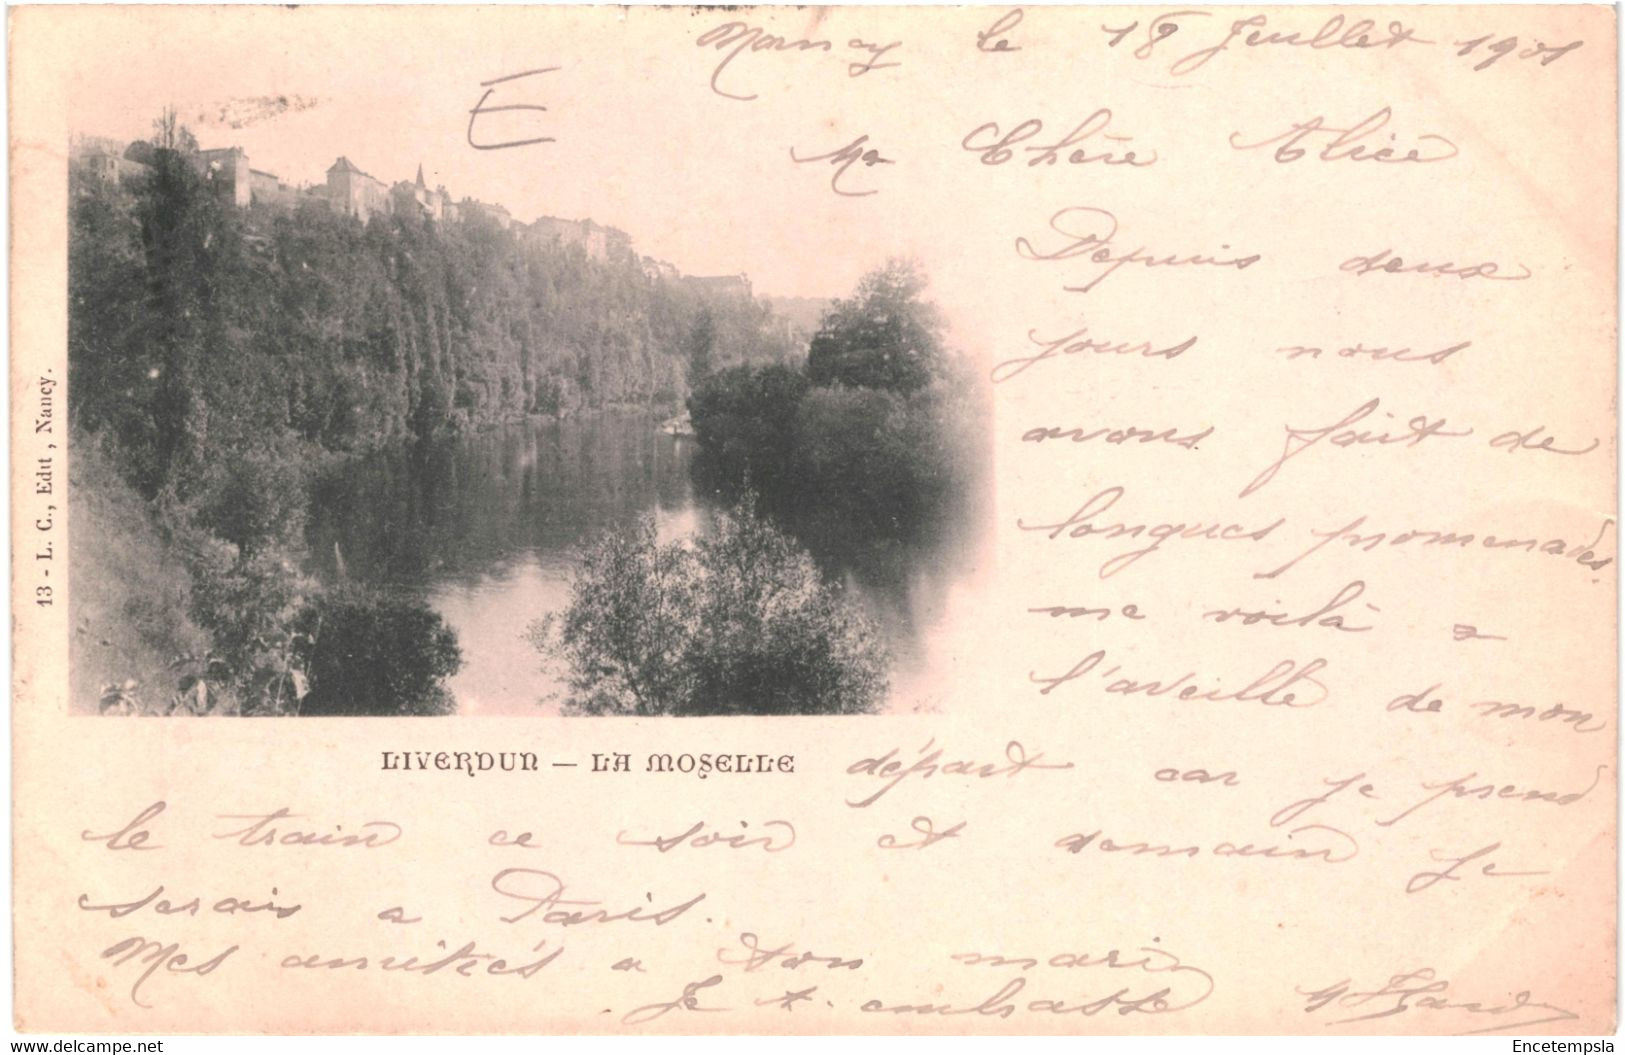 Nancy le 18 Juillet 1901
E
Ma Chère Alice
Depuis deux
jours nous
avons fait de
longues promenades.
me voilà a
l'aveille de mon
départ car je prend
le train ce soir et demain je
serais a Paris.
Mes amitiés a ton mari
Je t. embrasse
13 - L. C., Edit, Nancy.
LIVERDUN — LA MOSELLE
Delcampe.net
Encetempsla